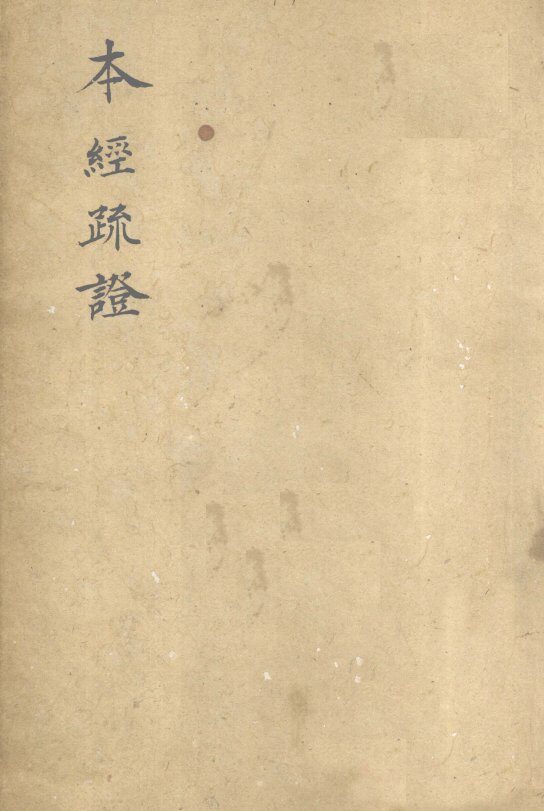 本經疏證